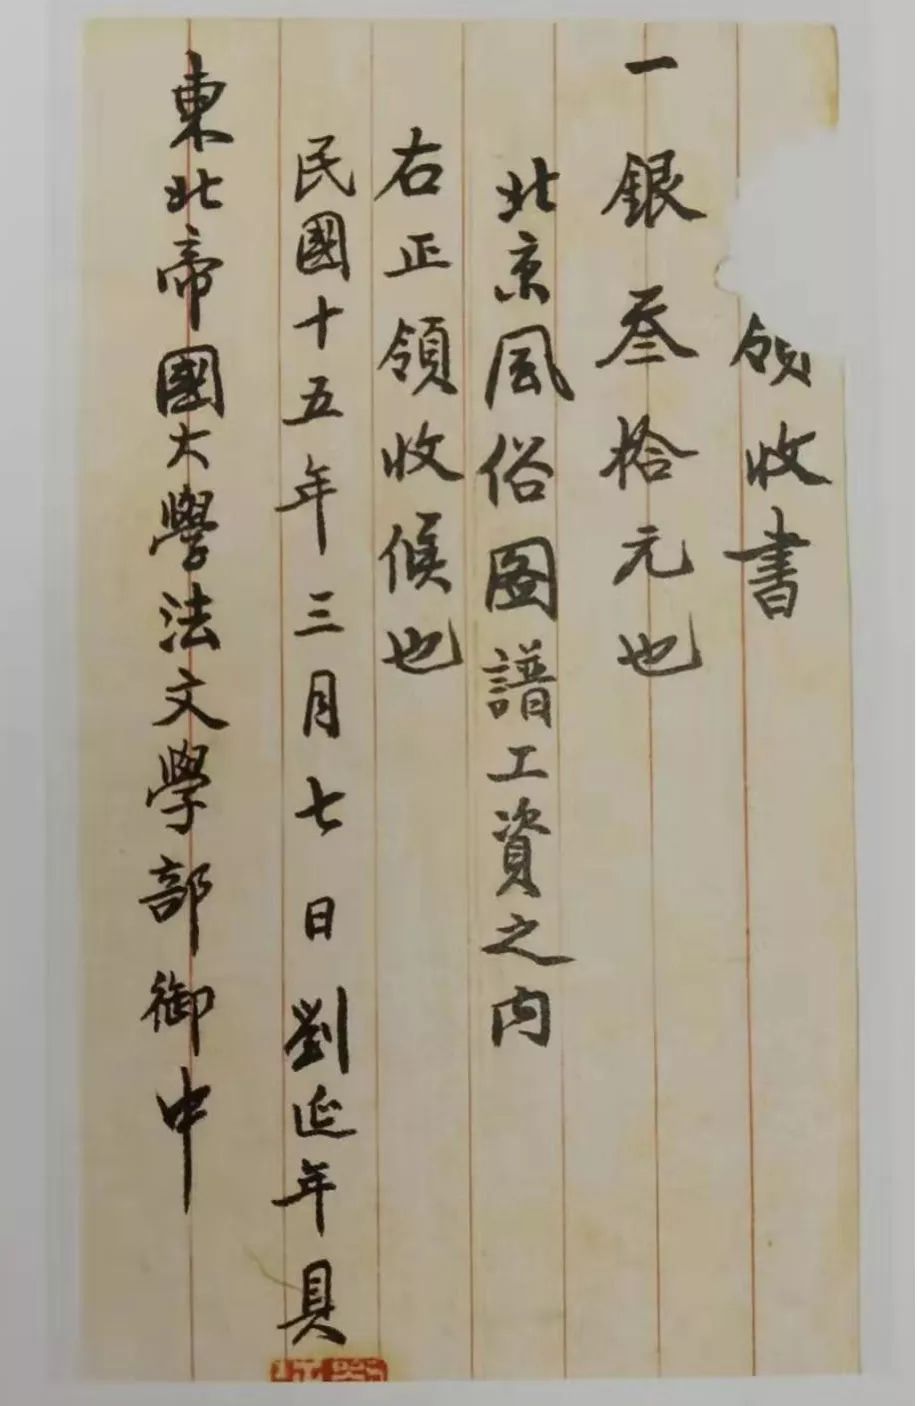 領收書
一銀叁拾元也
北京風俗圖譜工資之內
右正領收候也
民國十五年三月七日劉延年具
東北帝國大學法文學部御中